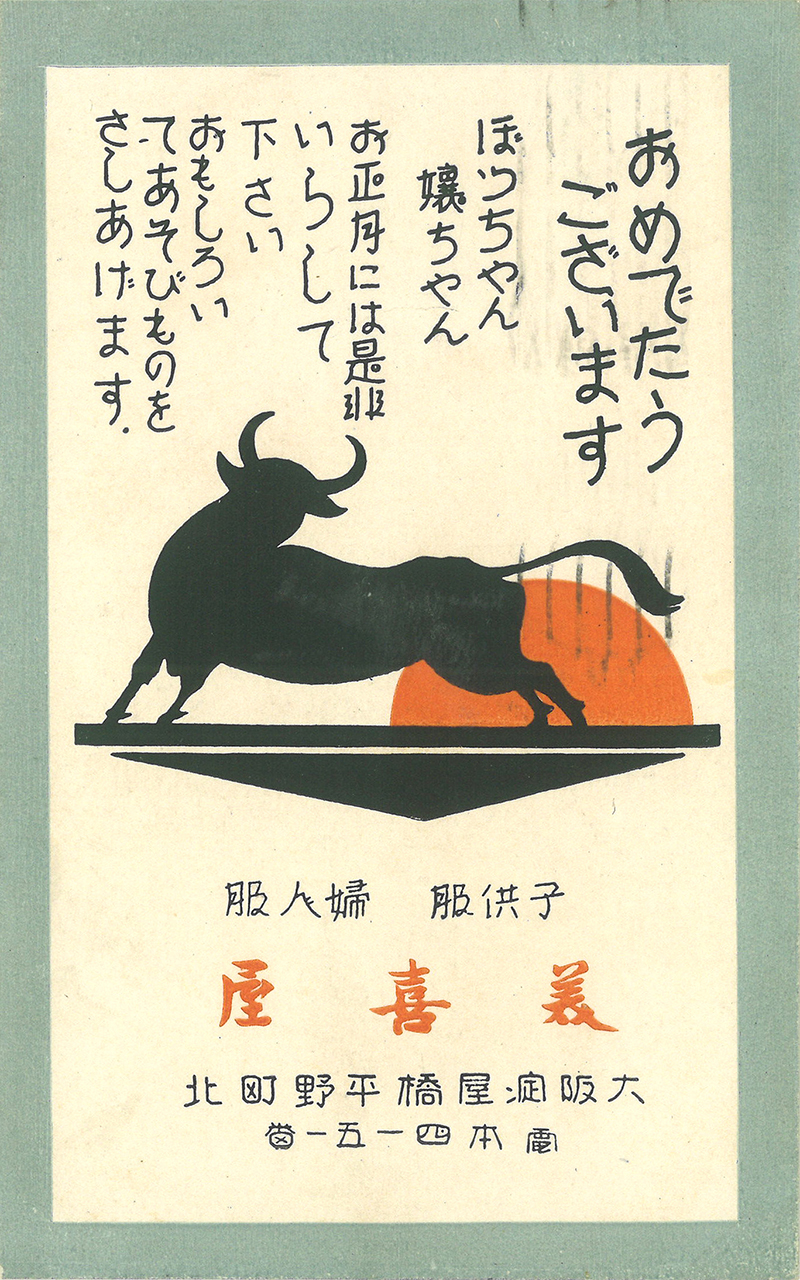 おめでたう
ございます
ぼつちやん
嬢ちやん
お正月には是非
いらして
下さい
おもしろい
てあそびものを
さしあげます.
子供服 婦人服
美喜屋
大阪淀屋橋平野町北
電本四一五一番